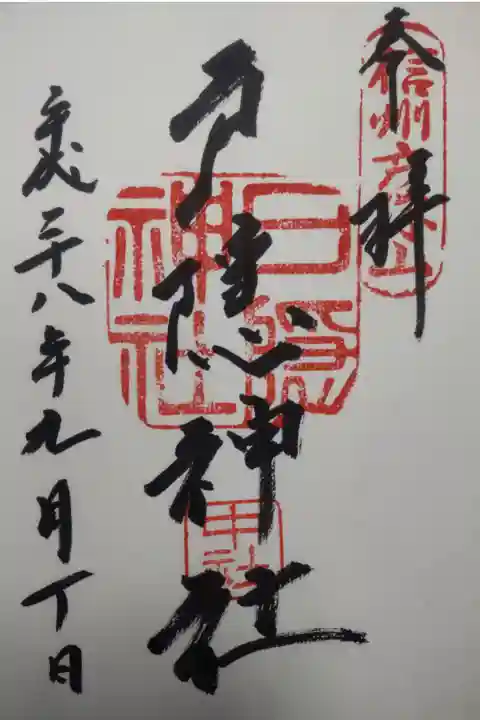 奉拝
信州戸隠山
戸隠神社
戸隠
神社
中社
平成二十八年九月 日